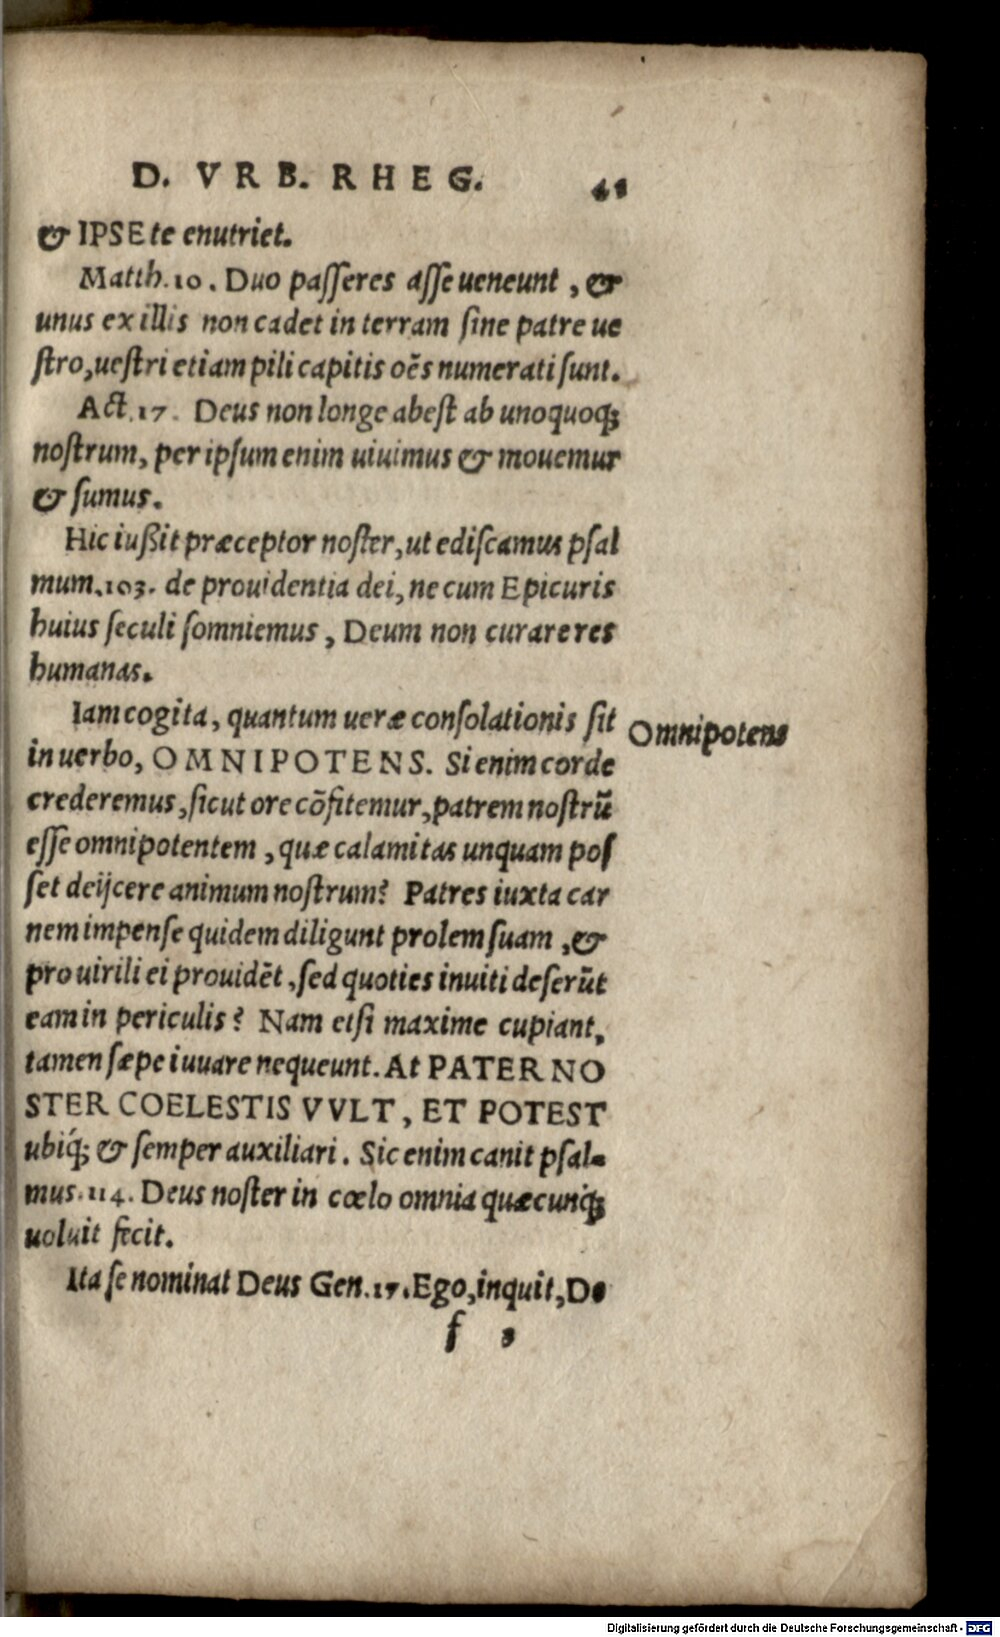 D. VRB. RHEG. 41
& IPSE te enutriet.
Matth. 10. Duo passeres asse ueneunt, &
unus ex illis non cadet in terram sine patre ue
stro, uestri etiam pili capitis oēs numerati sunt.
Act. 17. Deus non longe abest ab unoquoq;
nostrum, per ipsum enim uiuimus & mouemur
& sumus.
Hic iußit præceptor noster, ut ediscamus psal
mum. 103. de prouidentia dei, ne cum Epicuris
huius seculi somniemus, Deum non curare res
humanas.
Iam cogita, quantum ueræ consolationis sit
Omnipotens
in uerbo, OMNIPOTENS. Si enim corde
crederemus, sicut ore cōfitemur, patrem nostrū
esse omnipotentem, quæ calamitas unquam pos
set deijcere animum nostrum? Patres iuxta car
nem impense quidem diligunt prolem suam, &
pro uirili ei prouidēt, sed quoties inuiti deserūt
eam in periculis? Nam etsi maxime cupiant,
tamen sæpe iuuare nequeunt. At PATER NO
STER COELESTIS VVLT, ET POTEST
ubiq́; & semper auxiliari. Sic enim canit psal-
mus. 114. Deus noster in cœlo omnia quæcunq́;
uoluit fecit.
Ita se nominat Deus Gen. 17. Ego, inquit, De
f
Digitalisierung gefördert durch die Deutsche Forschungsgemeinschaft - DFG